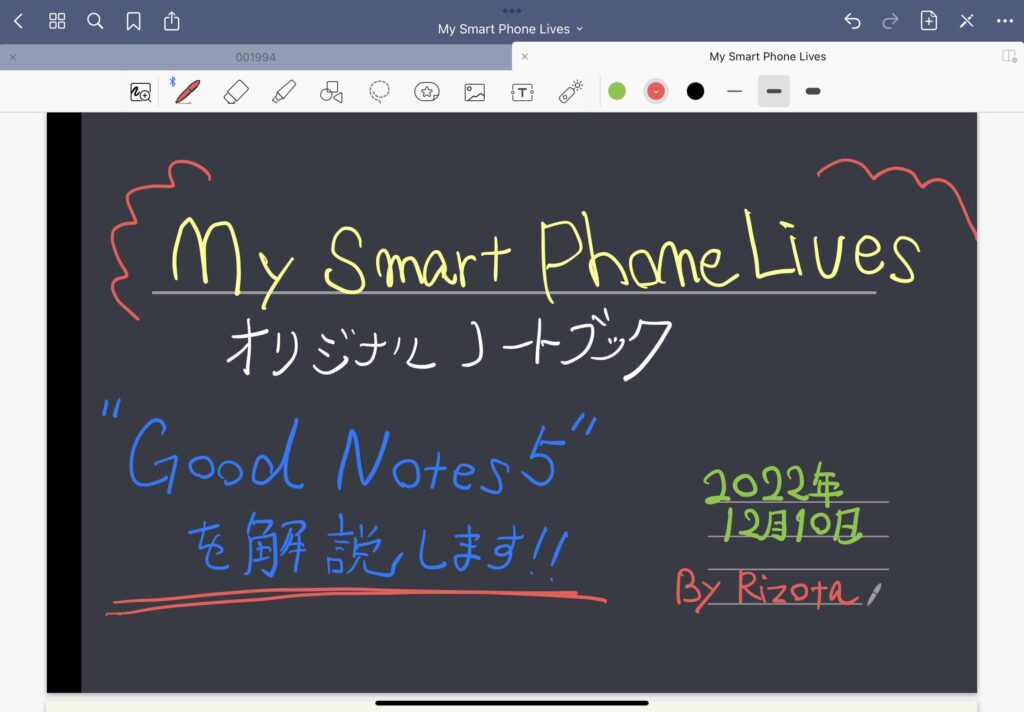 My Smart Phone Lives
001994
My Smart Phone Lives
My Smart Phone Lives
オリジナルノートブック
"Good Notes 5"
を解説します!!
2022年
12月10日
By Rizota